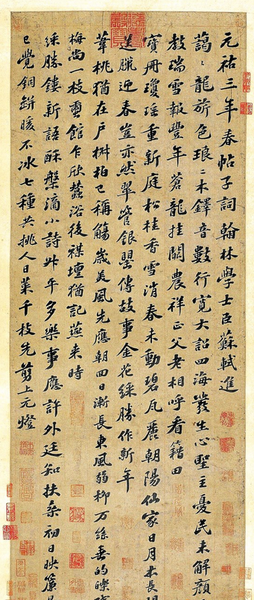 元祐三年春帖子詞翰林學士臣蘇軾進
藹藹龍旂色琅琅木鐸音數行寬大詔四海發生心聖主憂民未解顏
教瑞雪報豐年蒼龍挂闕農祥正父老相呼看籍田
寶冊瓊瑤重新庭松桂香雪消春未動碧瓦麗朝陽仙家日月本長閒
送臘迎春豈亦然翠管銀罌傳故事金花綵勝作新年
葦桃猶在戶椒柏已稱觴歲美風先應朝回日漸長東風弱柳萬絲垂的皪
梅尚一枝 館乍欣蠶浴後禖壇猶記燕來時
綵勝鏤新語酥盤滴小詩升平多樂事應許外廷知扶桑初日映簾
已覺銅缾暖不冰七種共挑人日菜千枝先剪上元燈